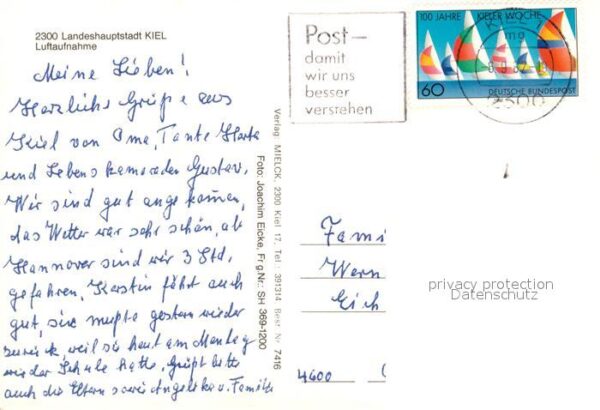 2300 Landeshauptstadt KIEL
Luftaufnahme
Meine Lieben!
Herzliche Grüße aus
Kiel von Oma, Tante Herta
und Lebenskamaraden Gustav.
Wir sind gut angekommen,
das Wetter war sehr schön, ab
Hannover sind wir 3 Std.
gefahren. Kerstin fährt auch
gut, sie mußte gestern wieder
zurück, weil sie heut am Montag
wieder Schule hatte. Grüßt bitte
auch die Eltern sowie Angelika u. Familie
Verlag MIELCK, 2300 Kiel 17, Tel.: 391314 Best. Nr. 7416
Foto: Joachim Eicke, Frg.Nr.: SH 369-1200
Post-
damit
wir uns
besser
verstehen
100 JAHRE KIELER WOCHE
KIEL 1
ma
2300
60 DEUTSCHE BUNDESPOST
Fami
Wern
Eich
4600
privacy protection
Datenschutz